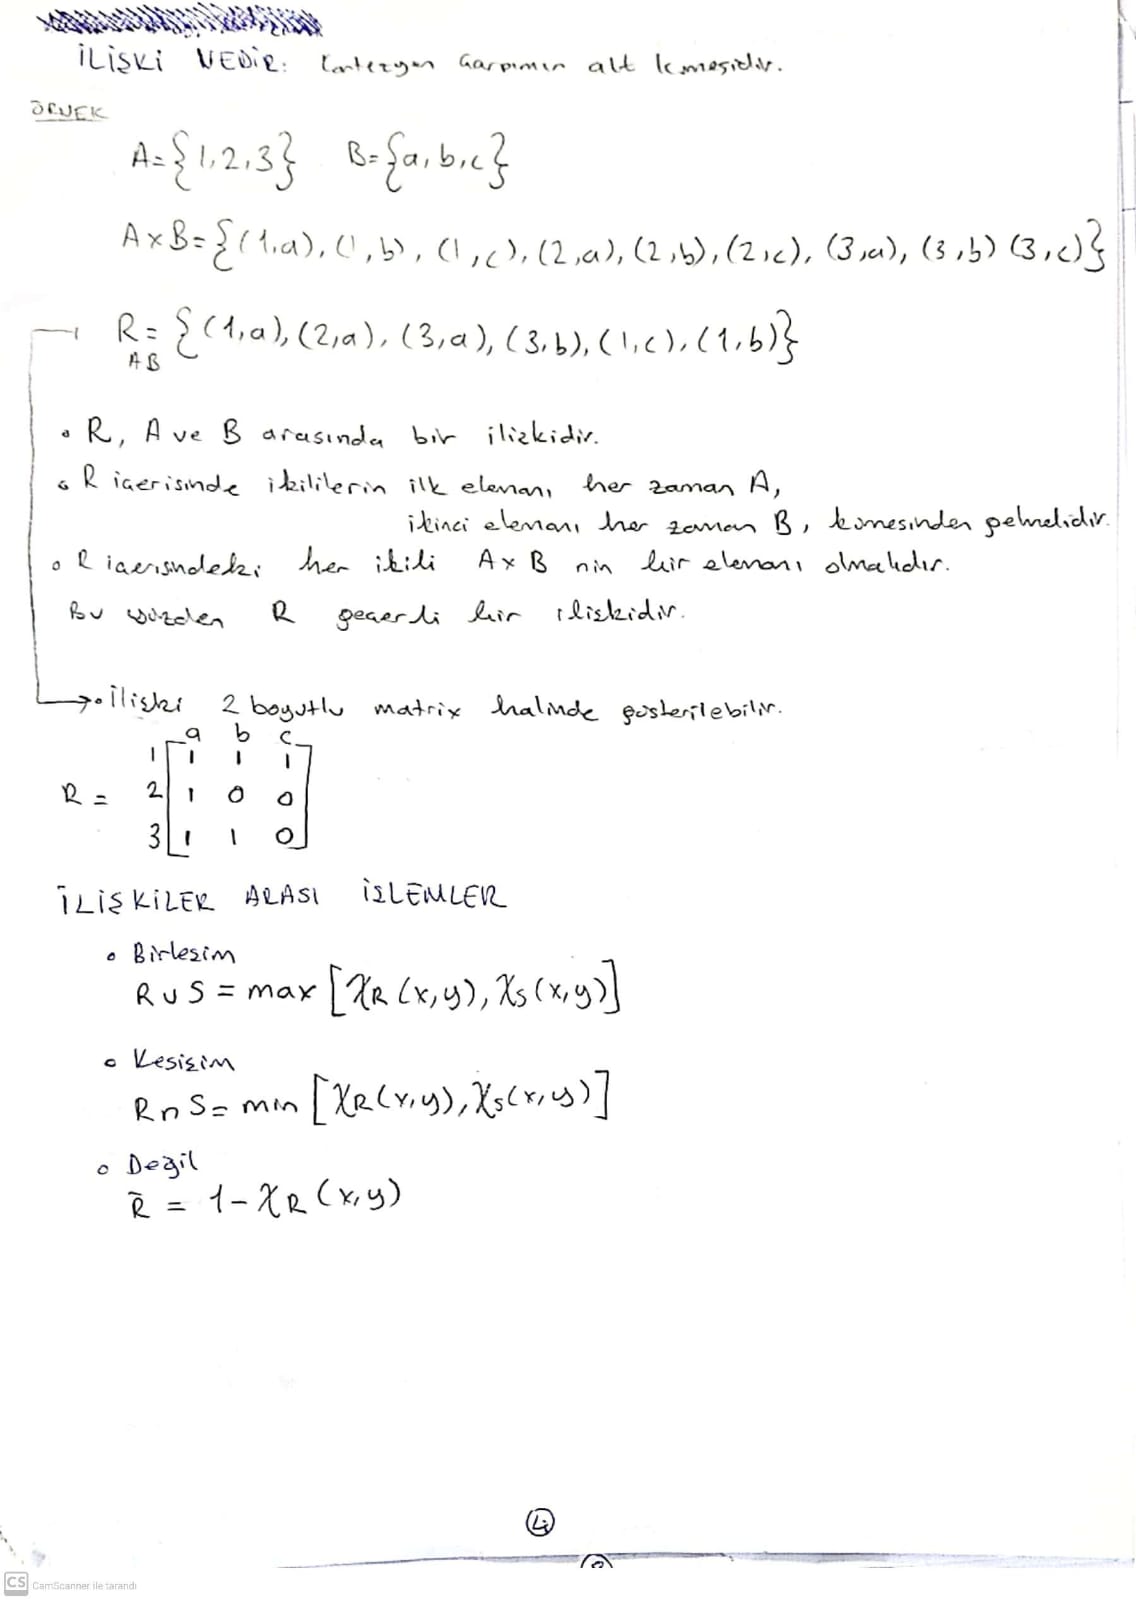 İLİŞKİ NEDİR: Kartezyen Çarpımın alt kümesidir.
ÖRNEK
A={1,2,3} B={a,b,c}
AxB={(1,a),(1,b),(1,c),(2,a),(2,b),(2,c),(3,a),(3,b) (3,c)}
R={(1,a),(2,a),(3,a),(3,b),(1,c),(1,b)}
AB
• R, A ve B arasında bir ilişkidir.
• R içerisinde ikililerin ilk elemanı her zaman A,
ikinci elemanı her zaman B, kümesinden gelmelidir.
• R içerisindeki her ikili AxB nin bir elemanı olmalıdır.
Bu yüzden R geçerli bir ilişkidir.
→• İlişki 2 boyutlu matrix halinde gösterilebilir.
a b c
1 1 1 1
R = 2 1 0 0
3 1 1 0
İLİŞKİLER ARASI İŞLEMLER
• Birleşim
R∪S = max [χR(x,y), χS(x,y)]
• Kesişim
R∩S = min [χR(x,y), χS(x,y)]
• Değil
R̄ = 1-χR(x,y)
4
CS CamScanner ile tarandı